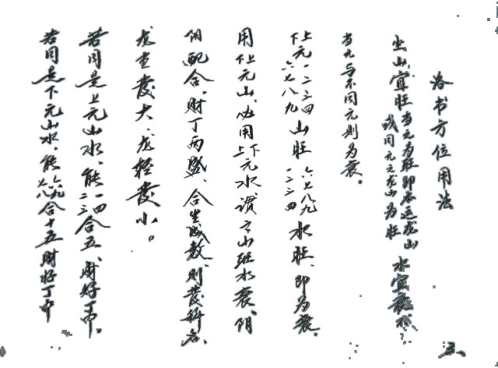 各书方位用法
坐山宜旺 当元为旺即本运龙山 或同元龙山为旺 水宜衰
当元与不同元则为衰。
上元一二三四 下元六七八九 山旺 六七八九 一二三四 水旺、即为衰。
用上下元山、必用上下元水 谓之山旺水衰、阴
阳配合、财丁两盛、合生成数、则发科名、
龙重发大、龙轻发小。
若同是上元山水、能一四二三合五、财好丁常。
若同是下元山水、能六九七八合十五财好丁常